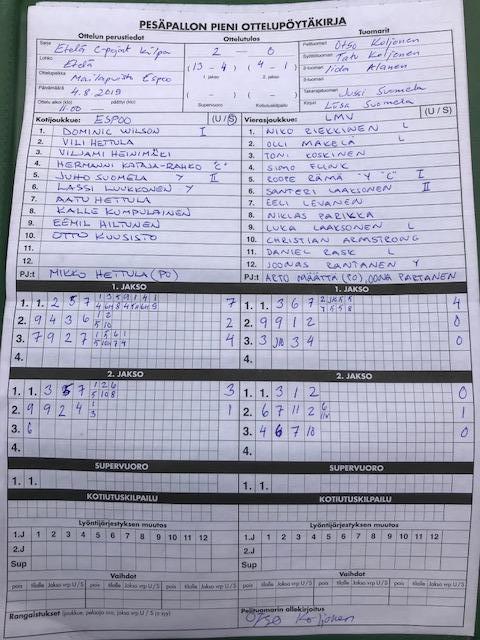 PESÄPALLON PIENI OTTELUPÖYTÄKIRJA
Ottelun perustiedot Ottelutulos Tuomarit
Sarja Etelä C-pojat kilpa 2 – 0 Pelituomari Otso Koljonen
Lohko Etelä (13 - 4) (4 - 1) Syöttötuomari Tatu Koljonen
1. jakso 2. jakso 2-tuomari Iida Alanen
Ottelupaikka Mailapuisto Espoo 3-tuomari
Päivämäärä 4.8.2019 Takarajatuomari Jussi Suomela
Ottelu alkoi (klo) 11.00 päättyi (klo) Supervuoro Kotiutuskilpailu Kirjuri Eesa Suomela
Kotijoukkue: ESPOO (U / S) Vierasjoukkue: LMV (U / S)
1. DOMINIC WILSON I 1. NIKO RIEKKINEN L
2. VILI HETTULA 2. OLLI MÄKELÄ L
3. VILJAMI HEINIMÄKI 3. TONI KOSKINEN
4. HERMANNI KATAJA-RAHKO "C" 4. SIMO FLINK
5. JUHO SUOMELA Y II 5. ROOPE RÄMÄ "Y "C" I
6. LASSI LUUKKONEN Y 6. SANTERI LAAKSONEN II
7. AATU HETTULA 7. EELI LEVÄNEN
8. KALLE KUMPULAINEN 8. NIKLAS PARIKKA
9. EEMIL HILTUNEN 9. LUKA LAAKSONEN L
10. OTTO KUUSISTO 10. CHRISTIAN ARMSTRONG
11. 11. DANIEL RASK
12. 12. JOONAS RANTANEN Y
PJ:t MIKKO HETTULA (PO) PJ:t ARTO MÄÄTTÄ (PO), OONA PARTANEN
1. JAKSO 1. JAKSO
1. 1. 2 5 7 7 1. 1. 3 6 7 4
2. 9 4 3 6 2 2. 9 9 1 2 0
3. 7 9 2 7 4 3. 3 3 4 0
4. 4.
2. JAKSO 2. JAKSO
1. 1. 3 5 7 3 1. 1. 3 1 2 0
2. 9 9 2 4 1 2. 6 7 11 2 1
3. 6 3. 4 6 7 10 0
4. 4.
SUPERVUORO SUPERVUORO
1. 1. 1. 1.
KOTIUTUSKILPAILU KOTIUTUSKILPAILU
Lyöntijärjestyksen muutos Lyöntijärjestyksen muutos
1.J 1 2 3 4 5 6 7 8 9 10 11 12 1.J 1 2 3 4 5 6 7 8 9 10 11 12
2.J 2.J
Sup Sup
Vaihdot Vaihdot
pois tilalle Jakso vrp U / S pois tilalle Jakso vrp U / S pois tilalle Jakso vrp U / S pois tilalle Jakso vrp U / S
Rangaistukset Pelituomarin allekirjoitus
Otso Koljonen